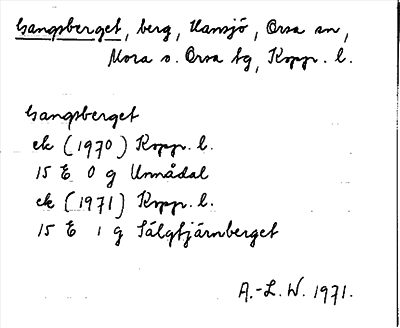 Gangsberget, berg, Hansjö, Orsa sn,
Mora o. Orsa tg, Kopp. l.
Gangsberget
ek (1970) Kopp. l.
15 E 0 g Unnådal
ek (1971) Kopp. l.
15 E 1 g Sälgtjärnberget
A.-L. W. 1971.